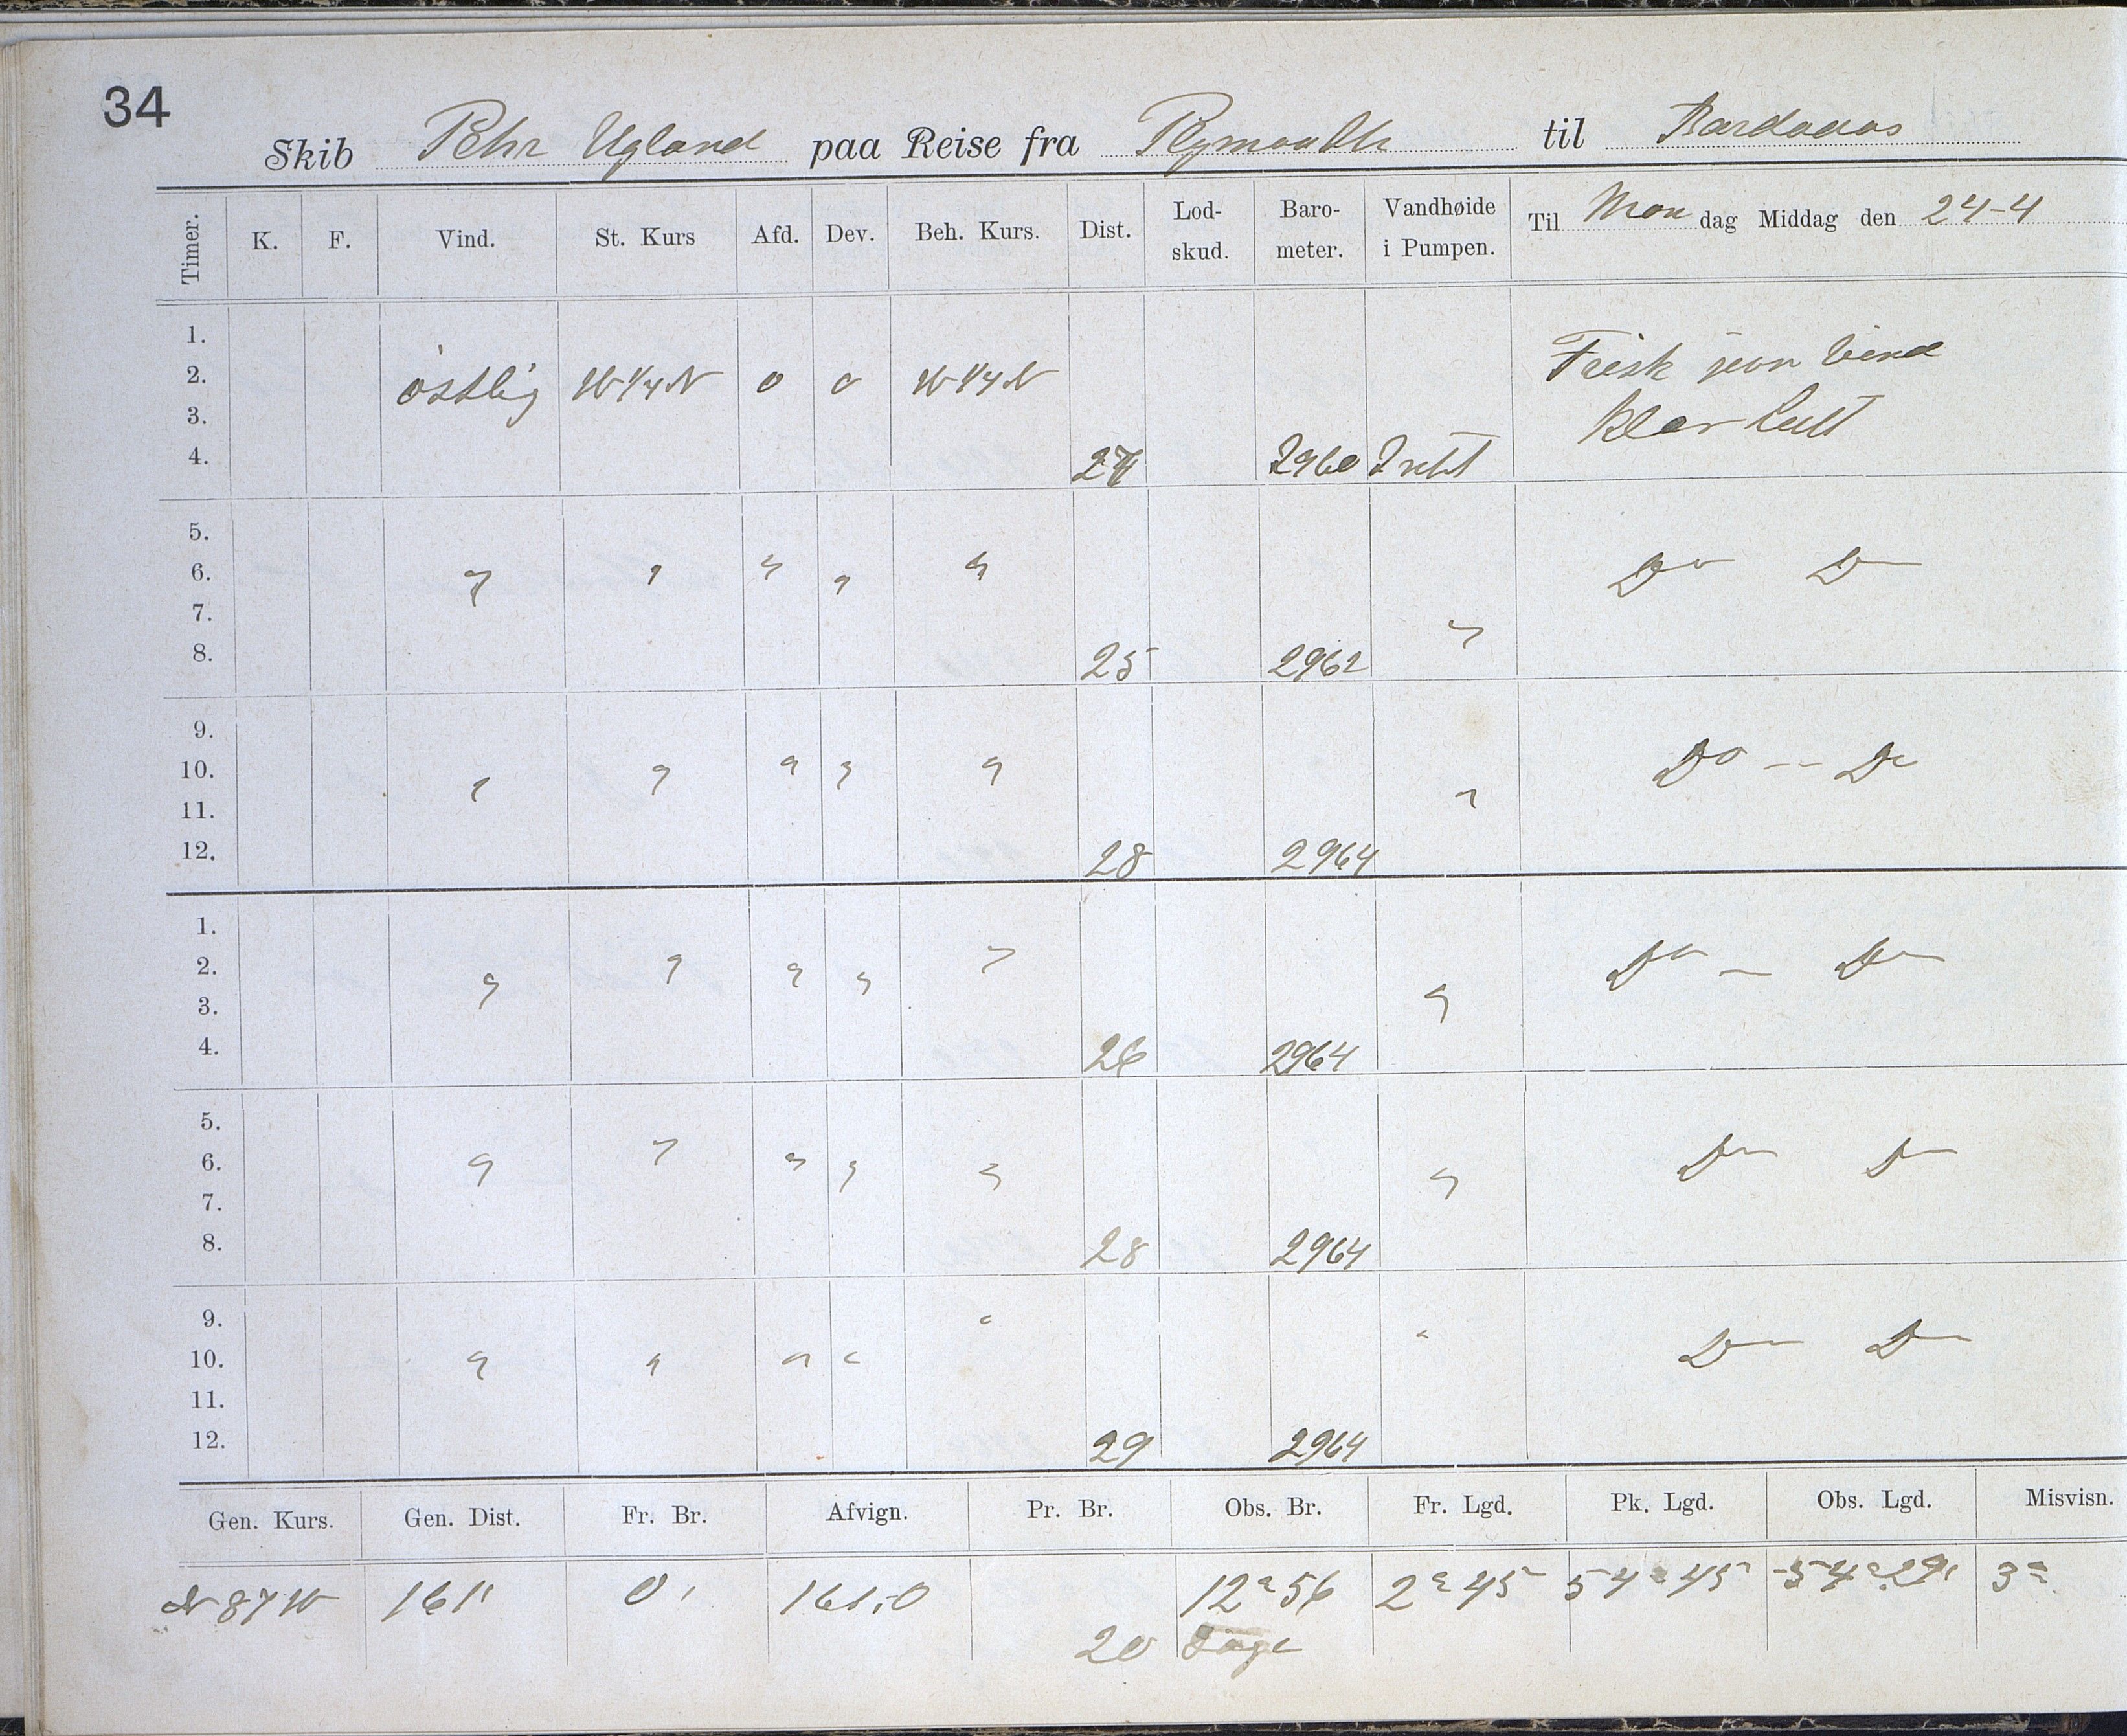 34
Skib Pehr Ugland paa Reise fra Plymouth til Bardados
Timer. K. F. Vind. St. Kurs Afd. Dev. Beh. Kurs. Dist. Lod-skud. Baro-meter. Vandhøide i Pumpen. Til Mon dag Middag den 24-4
1.
2. østlig W 1/4 N 0 0 W 1/4 N Frisk jevn Vind
3. Klar Luft
4. 27 2960 Intet
5.
6. " " " " " Do Do
7. "
8. 25 2962
9.
10. " " " " " Do -- Do
11. "
12. 28 2964
1.
2. " " " " " Do - Do
3. "
4. 26 2964
5.
6. " " " " " " Do Do
7.
8. 28 2964
9. " "
10. " " " " Do Do
11.
12. 29 2964
Gen. Kurs. Gen. Dist. Fr. Br. Afvign. Pr. Br. Obs. Br. Fr. Lgd. Pk. Lgd. Obs. Lgd. Misvisn.
N 87 W 161' 0' 161,0 12° 56 2° 45 54° 45 54° 29' 3°
20 Dage